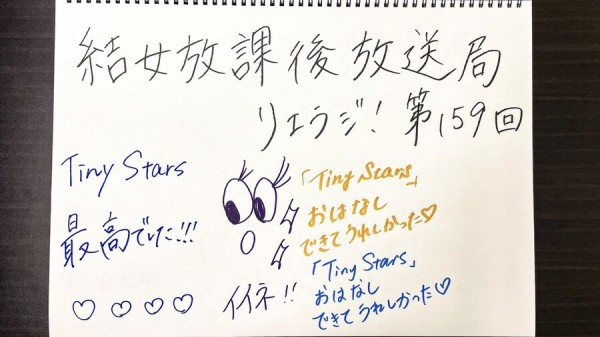 結女放課後放送局
リエラジ！第159回
Tiny Stars
最高でした!!!
♡♡♡♡
イイネ!!
「Tiny Stars」
おはなし
できてうれしかった♡
「Tiny Stars」
おはなし
できてうれしかった♡